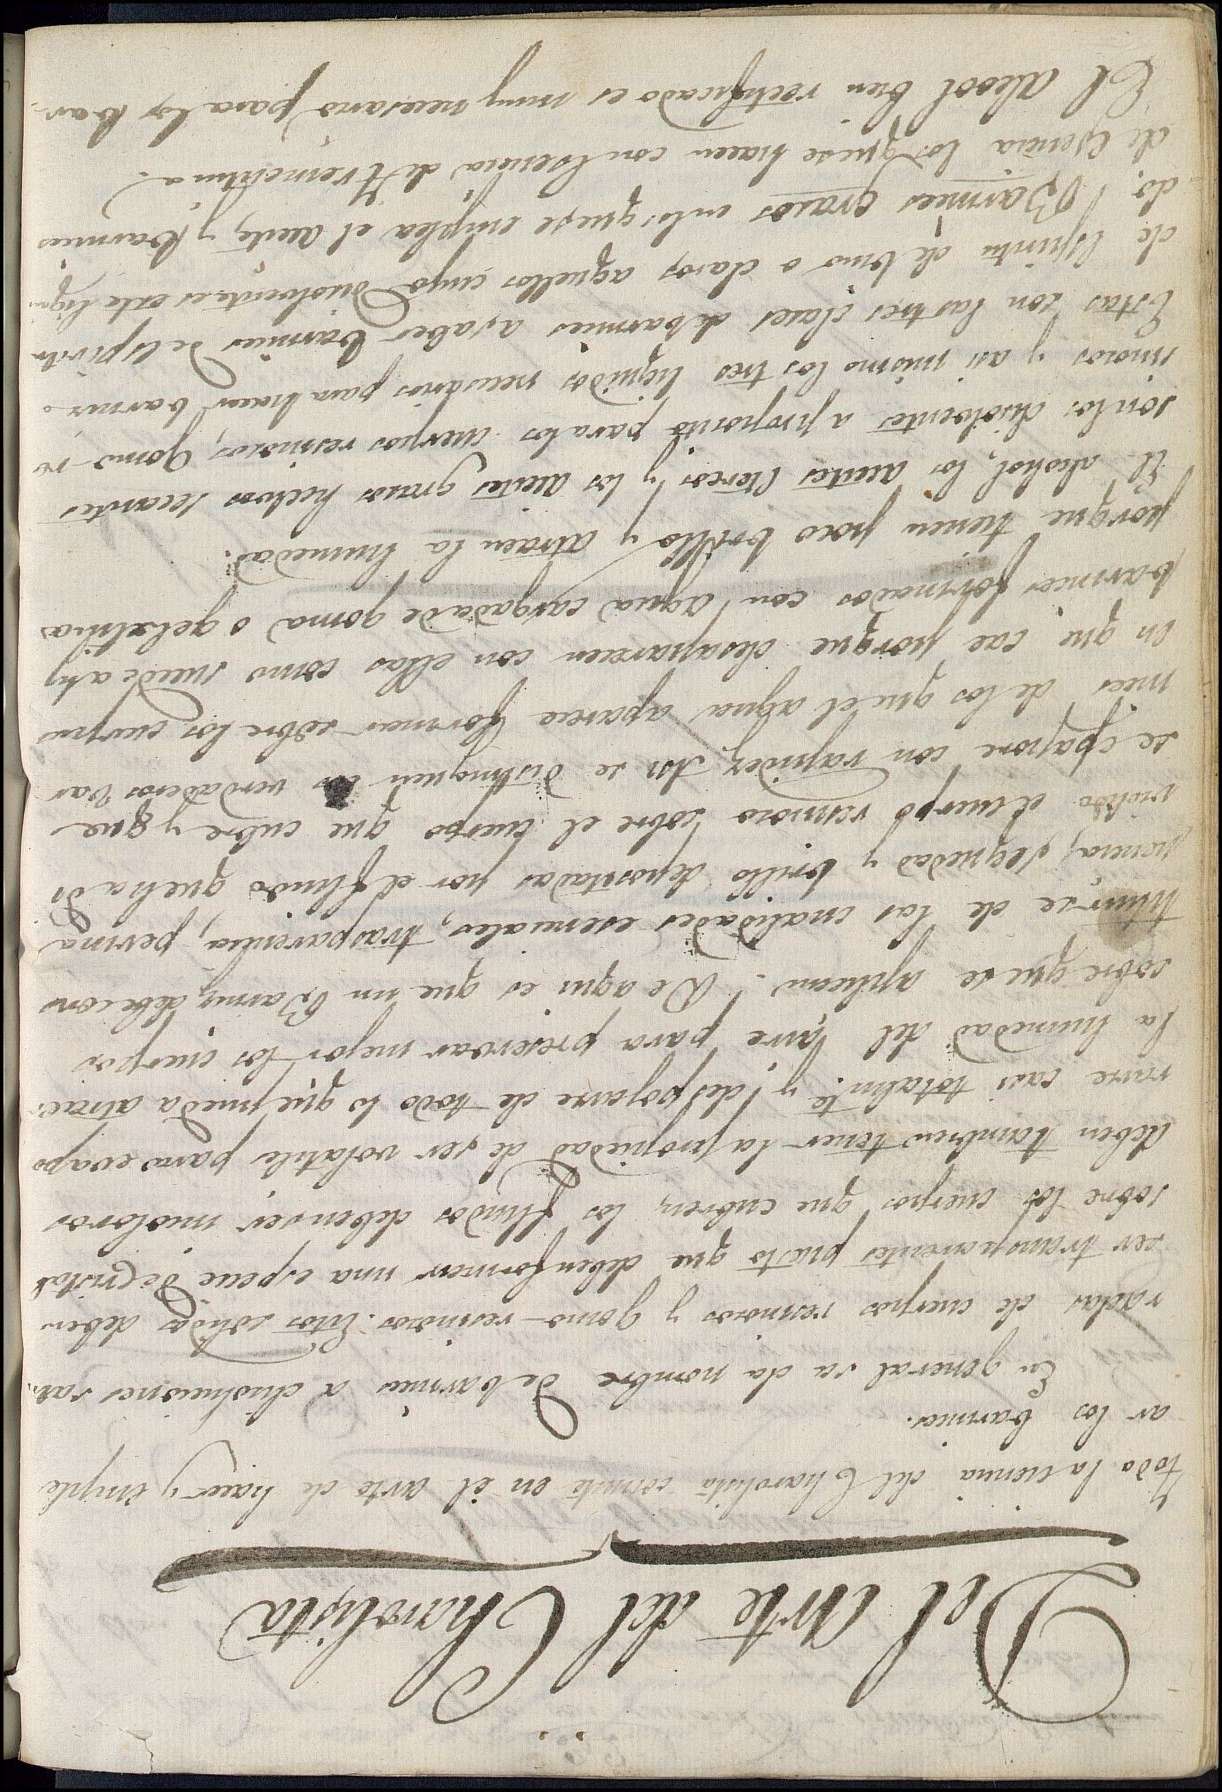 Del Arte del Charolista
Toda la ciencia del Charolista consiste en el arte de hacer y emple
ar los barnices.
En general se da nombre de barnices a disoluciones satu
radas de cuerpos resinosos y gomo-resinosos. Estos solidos deben
ser transparentes puesto que deben formar una especie de cristal
sobre los cuerpos que cubren, los fluidos deben ser incoloros
deben tambien tener la propiedad de ser volatiles para evapo
rarse casi totalmte. y despojarse de todo lo que pueda atraer
la humedad del ayre para preservar mejor los cuerpos
sobre que se aplican. De aqui es que un Barniz debe cons
tituirse de las cualidades esenciales, trasparencia, perma
nencia, sequedad y brillo depositadas por el fluido que ha di
vidido el cuerpo resinoso sobre el cuerpo que cubre y que
se evapore con rapidez. Asi se distinguen los verdaderos bar
nices de los que el agua aparece formar sobre los cuerpos
en que cae porque desaparecen con ellas como sucede a los
barnices formados con agua cargada de goma o gelatina
porque tienen poco brillo y atraen la humedad.
El alcohol, los aceites etereos y los aceites grasos hechos secantes
son los disolventes a proposito para los cuerpos resinosos, gomo-re
sinosos y asi mismo los tres liquidos necesarios para hacer barniz.
Estas son las tres clases de barnices a saber barnices de espiritu
de espiritu de vino o claros aquellos cuyo disolvente es este liqui
do. Barnices crasos en los que se emplea el aceite, y barnices
de esencia los que se hacen con esencia de trementina.
El alcool bien rectificado es muy necesario para los bar